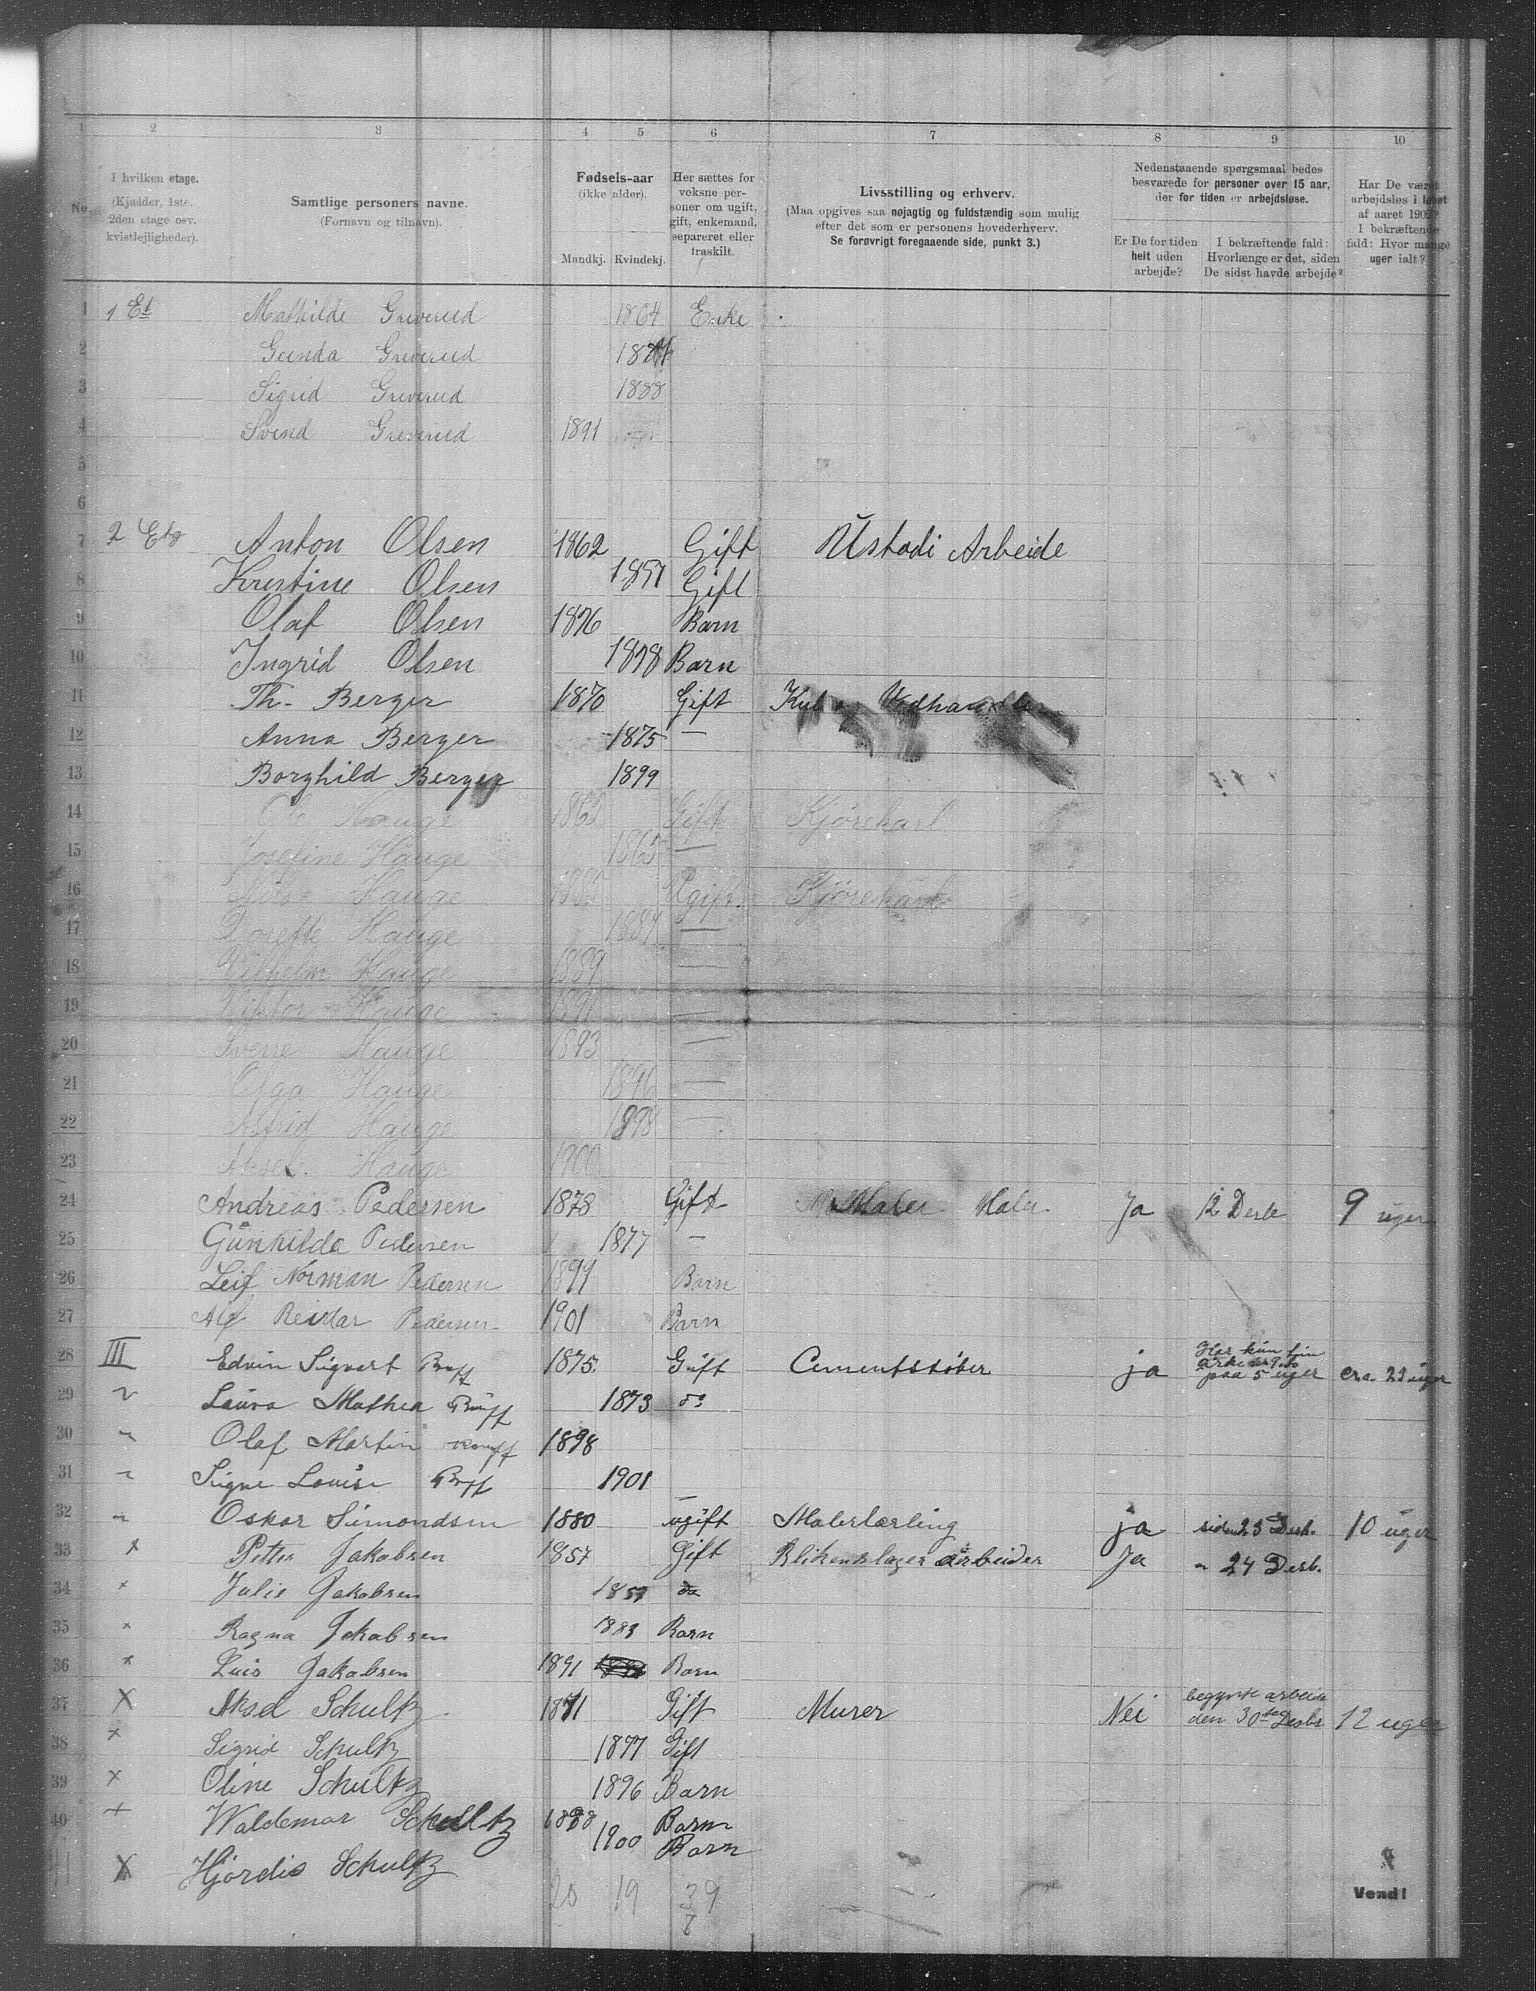 1 2 3 4 5 6 7 8 9 10
No.
I hvilken etage.
(Kjælder, 1ste,
2den etage osv.
kvistlejligheder).
Samtlige personers navne.
(Fornavn og tilnavn).
Fødsels-aar
(ikke alder).
Mandkj. Kvindekj.
Her sættes for
voksne per-
soner om ugift,
gift, enkemand,
separeret eller
fraskilt.
Livsstilling og erhverv.
(Maa opgives saa nøjagtig og fuldstændig som mulig
efter det som er personens hovederhverv.
Se forøvrigt foregaaende side, punkt 3.)
Nedenstaaende spørgsmaal bedes
besvarede for personer over 15 aar,
der for tiden er arbejdsløse.
Er De for tiden
helt uden
arbejde?
I bekræftende fald:
Hvorlænge er det, siden
De sidst havde arbejde?
Har De været
arbejdsløs i løbet
af aaret 1902?
I bekræftende
fald: Hvor mange
uger ialt?
1 1 Et Mathilde Greverud 1864 Enke
2 Gunda Greverud
3 Sigrid Greverud 1888
4 Svend Greverud 1891
5
6
7 2 Etg Anton Olsen 1862 Gift Ustadi Arbeide
8 Kristine Olsen 1857 Gift
9 Olaf Olsen 1896 Barn
10 Ingrid Olsen 1898 Barn
11 Th. Berger 1870 Gift
12 Anna Berger 1875 —
13 Borghild Berger 1899
14 Hauge 1862 Gift Kjørekarl
15 Josefine Hauge 1865 —
16 Hauge 1885 Ugift. Kjørekarl
17 Dorefte Hauge 1887 —
18 Vilhelm Hauge 1889 —
19 Viktor Hauge 1891 —
20 Sverre Hauge 1893 —
21 Olga Hauge 1896 —
22 Astrid Hauge 1898 —
23 Aksel Hauge 1900
24 Andreas Pedersen 1878 Gift Maler Maler Ja 12 Desb 9 uger
25 Gunhilda Pedersen 1877 —
26 Leif Norman Pedersen 1899 Barn
27 Alf Reidar Pedersen 1901 Barn
28 III Edvin Sigvart 1875 Gift Cementstøber ja paa 5 uger 
29 Laura Mathea 1873 do
30 Olaf Martin 1898
31 Signe Louise 1901
32 Oskar Simondsen 1880 ugift Malerlærling ja siden 23 Desb. 10 uger
33 x Petter Jakobsen 1857 Gift Blikenslager arbeider Ja " 24 Desb.
34 x Julie Jakobsen 1857 do
35 x Ragna Jakobsen 1883 Barn
36 x Luis Jakobsen 1891 Barn
37 X Aksel Schultz 1871 Gift Murer Nei begynte arbeide den 30te Desbr 12 uger
38 x Sigrid Schultz 1877 Gift
39 x Oline Schultz 1896 Barn
40 x Waldemar Schultz 1898 Barn
X Hjørdis Schultz 1900 Barn
20 19 39
8
Vend!